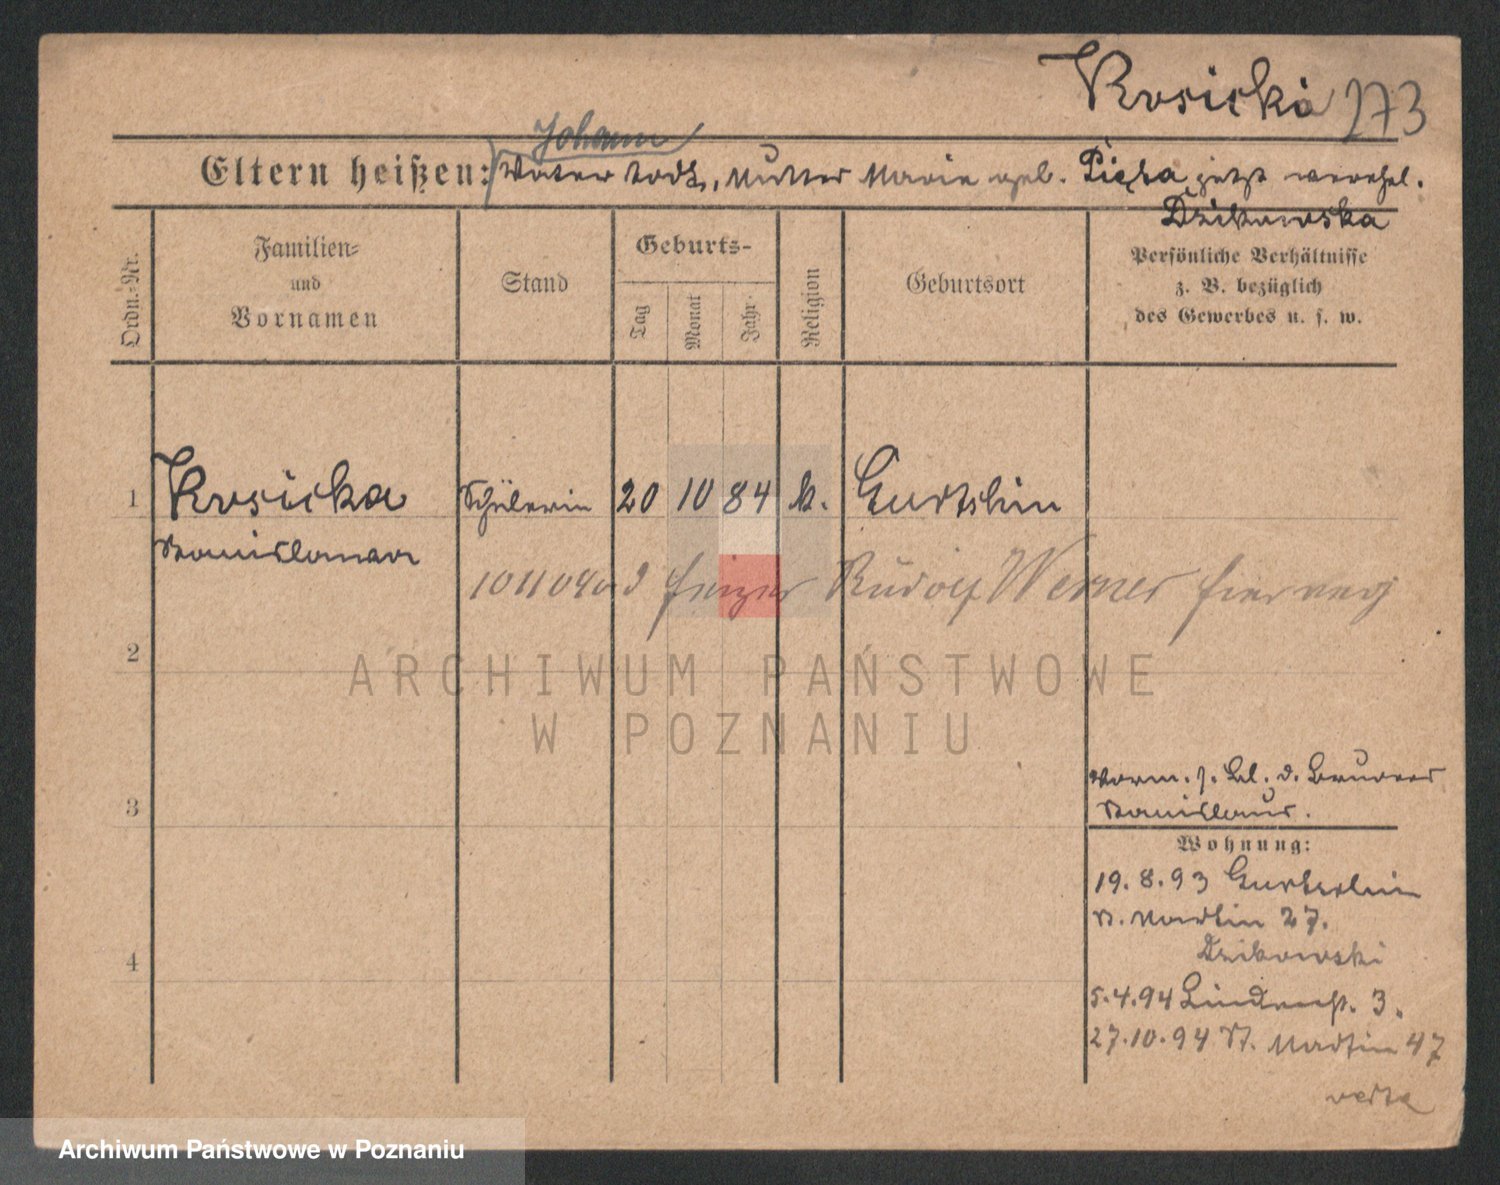 Kosicki 273
Johann
Eltern heißen: Vater todt, Mutter Marie geb. Pięta jetzt verehel.
Dzikowska
Ordn.-Nr.
Familien-
und
Vornamen
Stand
Geburts-
Tag
Monat
Jahr
Religion
Geburtsort
Persönliche Verhältnisse
z. B. bezüglich
des Gewerbes u. s. w.
1 Kosicka Schülerin 20 10 84 k. Gurtschin
Stanislawa
Rudolf Werner
2
ARCHIWUM PAŃSTWOWE
W POZNANIU
3
Vorm. s. Bl. d. Bruders
Stanislaus.
Wohnung:
19.8.93 Gurtschin
St. Martin 27.
Dzikowski
4
5.4.94 Lindenst. 3.
27.10.94 St. Martin 47
verte
Archiwum Państwowe w Poznaniu